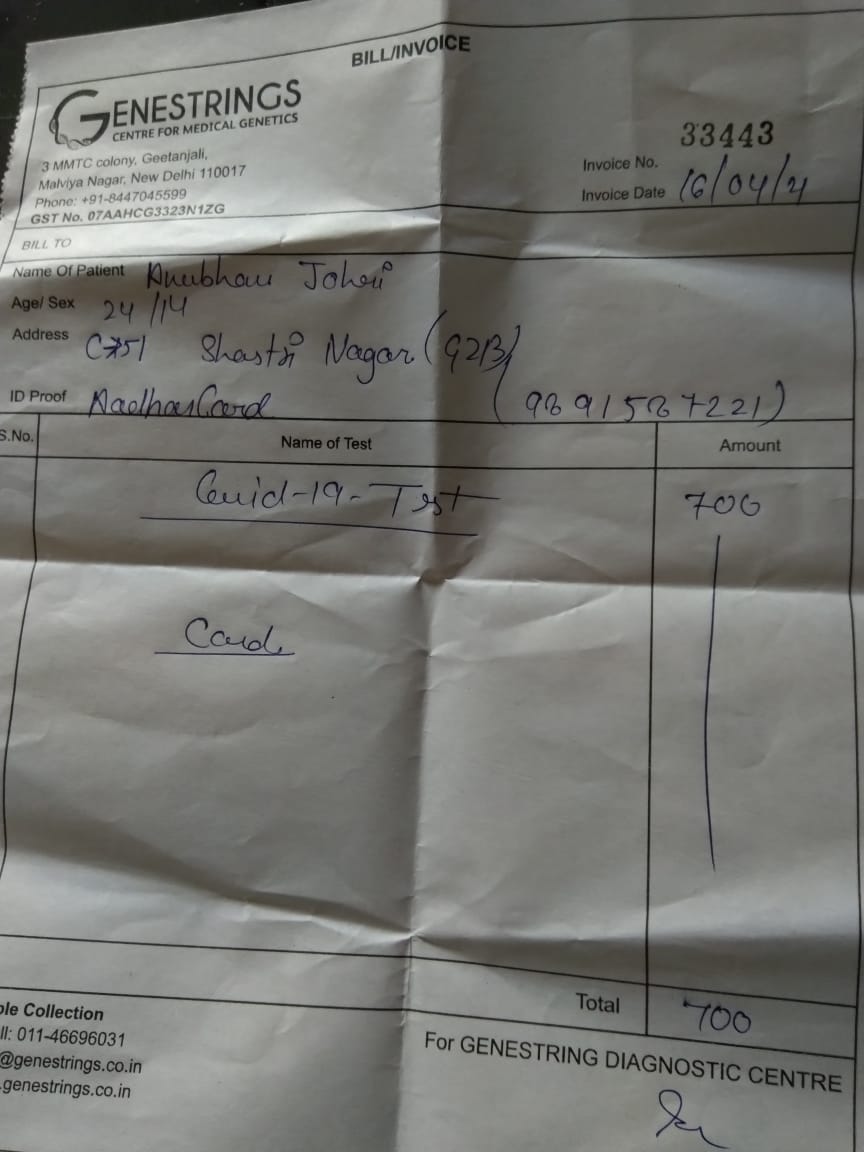 BILL/INVOICE
GENESTRINGS
CENTRE FOR MEDICAL GENETICS
3 MMTC colony, Geetanjali,
Malviya Nagar, New Delhi 110017
Phone: +91-8447045599
GST No. 07AAHCG3323N1ZG
Invoice No. 33443
Invoice Date 16/04/21
BILL TO
Name Of Patient Anubhav Johri
Age/ Sex 24 /M
Address C751 Shastri Nagar (GZB)
ID Proof Aadhar Card (9891587221)
S.No. Name of Test Amount
Covid-19-Test 700
Card
Total 700
ple Collection
ll: 011-46696031
@genestrings.co.in
.genestrings.co.in
For GENESTRING DIAGNOSTIC CENTRE